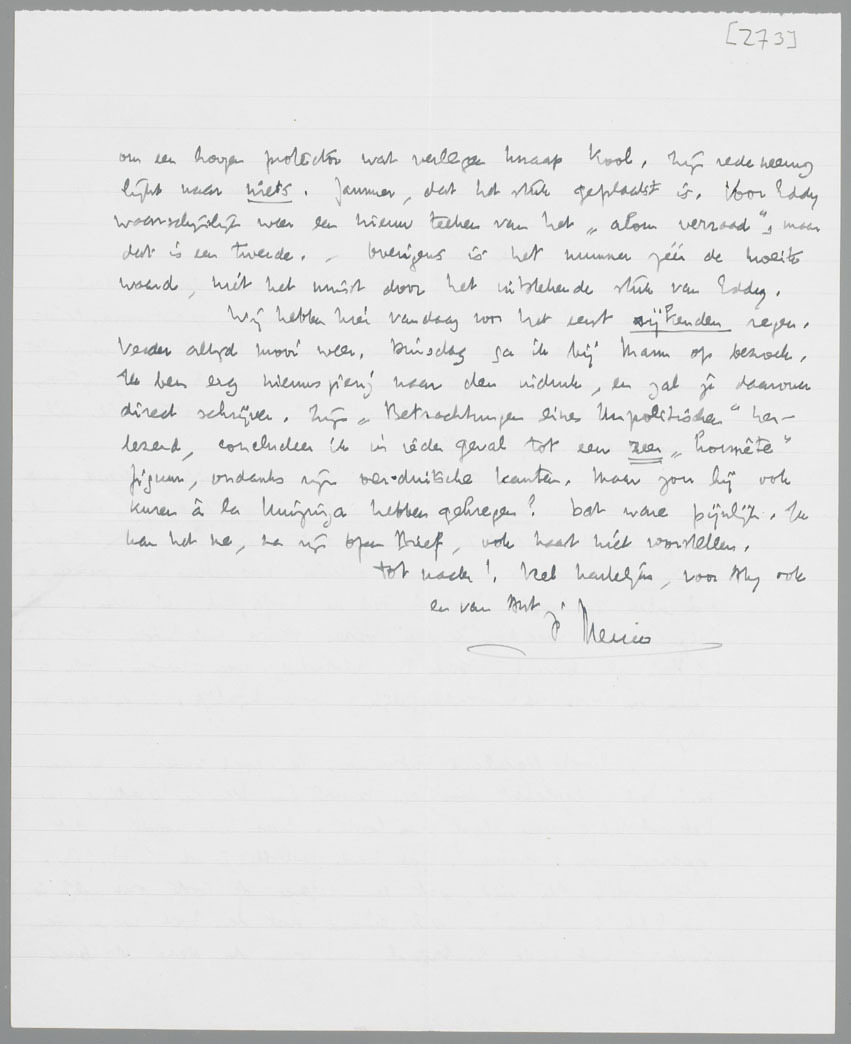 [273]
om een hoogen protector wat verlegen knaap Kool. Zijn redeneering
lijkt naar niets. Jammer, dat het stuk geplaatst is. Voor Eddy
waarschijnlijk weer een nieuw teeken van het „alom verraad", maar
dat is een tweede. - Overigens is het nummer zéér de moeite
waard, niét het minst door het uitstekende stuk van Eddy.
Wij hebben hier vandaag voor het eerst regen.
Verder altijd mooi weer. Dinsdag ga ik bij Mann op bezoek.
Ik ben erg nieuwsgierig naar den indruk, en zal je daarover
direct schrijven. Zijn „Betrachtungen eines Unpolitischen" her-
lezend, concludeer ik in ieder geval tot een zeer „honnête"
figuur, ondanks zijn oer-duitsche kanten. Maar zou hij ook
kuren à la Huizinga hebben gekregen? Dat ware pijnlijk. Ik
kan het me, na zijn open Brief, ook haast niét voorstellen.
Tot nader! Veel hartelijks, voor Any ook
en van Ant
je Menno